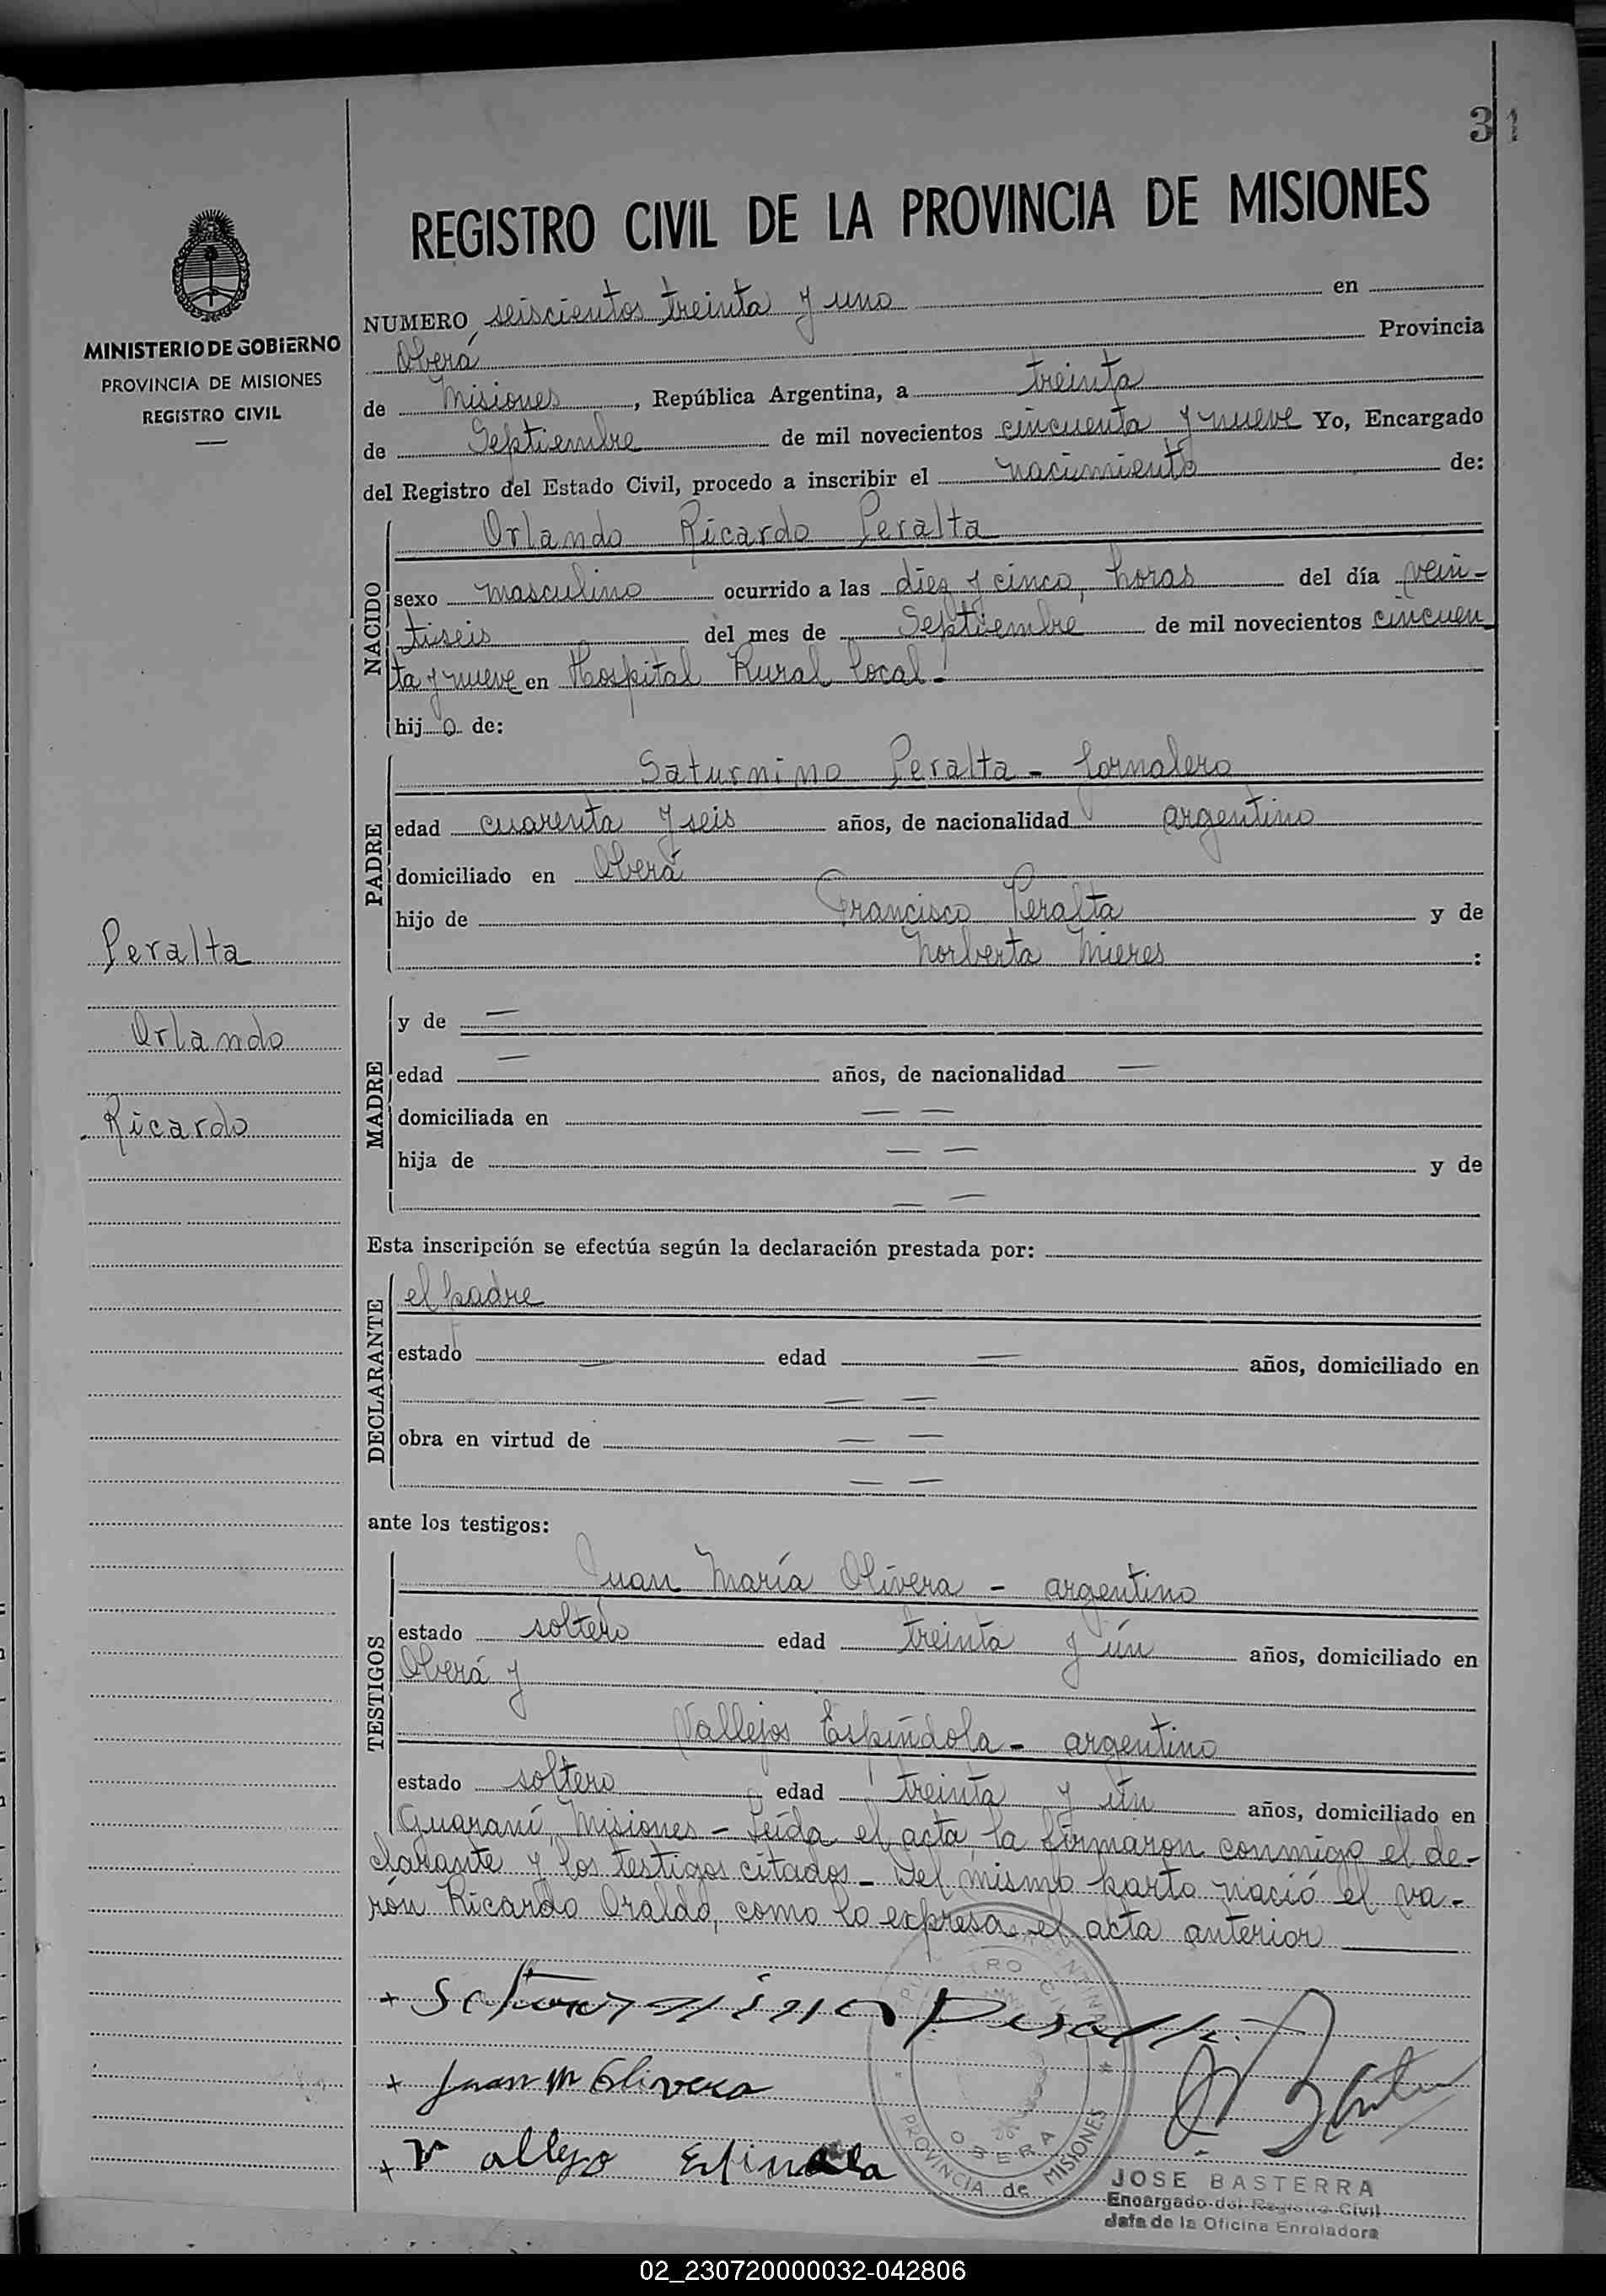 31
REGISTRO CIVIL DE LA PROVINCIA DE MISIONES
MINISTERIO DE GOBIERNO
PROVINCIA DE MISIONES
REGISTRO CIVIL
NUMERO seiscientos treinta y uno en
Oberá Provincia
de Misiones, República Argentina, a treinta
de Septiembre de mil novecientos cincuenta y nueve Yo, Encargado
del Registro del Estado Civil, procedo a inscribir el nacimiento de:
NACIDO
Orlando Ricardo Peralta
sexo masculino ocurrido a las diez y cinco, horas del día vein-
tiseis del mes de Septiembre de mil novecientos cincuen
ta y nueve en Hospital Rural local.-
hijo de:
PADRE
Saturnino Peralta - Jornalero
edad cuarenta y seis años, de nacionalidad argentino
domiciliado en Oberá
hijo de Francisco Peralta y de
Norberta Mieres :
Peralta
Orlando
Ricardo
MADRE
y de —
edad — años, de nacionalidad —
domiciliada en — —
hija de — — y de
— —
Esta inscripción se efectúa según la declaración prestada por:
DECLARANTE
el padre
estado — edad — años, domiciliado en
— —
obra en virtud de — —
— —
ante los testigos:
TESTIGOS
Juan María Olivera - argentino
estado soltero edad treinta y ún años, domiciliado en
Oberá y
Vallejos Espíndola - argentino
estado soltero edad treinta y ún años, domiciliado en
Guaraní Misiones - Leída el acta la firmaron conmigo el de-
clarante y los testigos citados - Del mismo parto nació el va-
rón Ricardo Oraldo, como lo expresa el acta anterior
+ Saturnino Peralta
+ Juan M Olivera
+ Vallejo Espindola
OBERA
PROVINCIA de MISIONES
JOSE BASTERRA
Encargado del Registro Civil
Jefe de la Oficina Enroladora
02_230720000032-042806